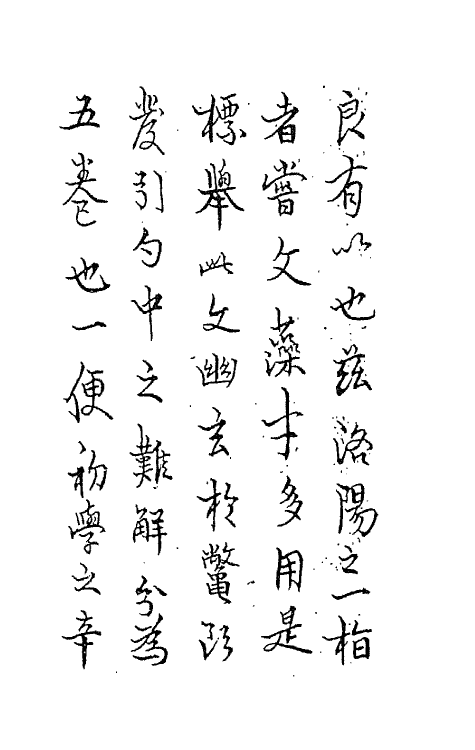 良有以也茲洛陽之一指
者嘗文藻才多用是
標舉此文幽玄於鼈頭
發引勺中之難解分為
五卷也一便初學之辛